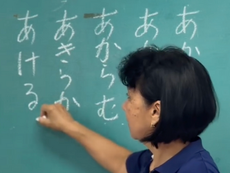 あか
あか
あからむ
あきらか
あける